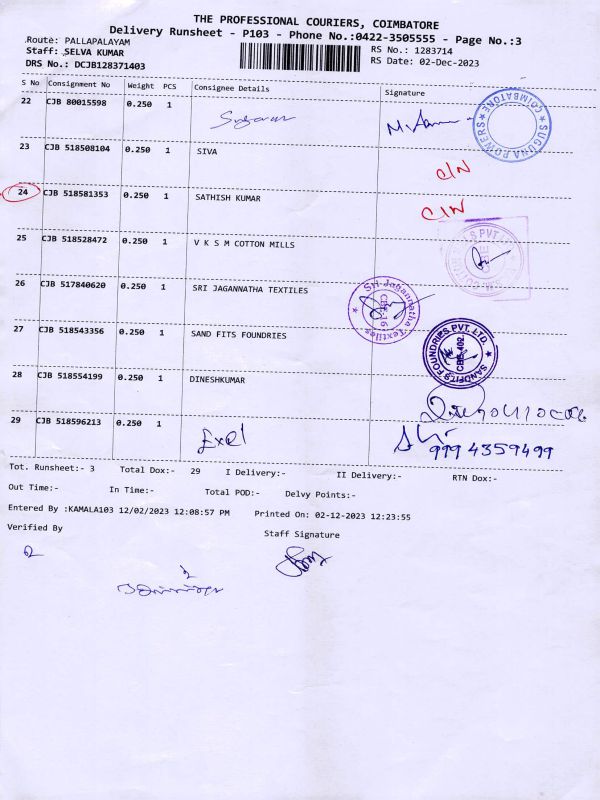 THE PROFESSIONAL COURIERS, COIMBATORE
Delivery Runsheet - P103 - Phone No.:0422-3505555 - Page No.:3
Route: PALLAPALAYAM
Staff: SELVA KUMAR RS No.: 1283714
DRS No.: DCJB128371403 RS Date: 02-Dec-2023
S No Consignment No Weight PCS Consignee Details Signature
22 CJB 80015598 0.250 1
SUGUNA POWERS COIMBATORE
23 CJB 518508104 0.250 1 SIVA C/N
24 CJB 518581353 0.250 1 SATHISH KUMAR C/N
25 CJB 518528472 0.250 1 V K S M COTTON MILLS
26 CJB 517840620 0.250 1 SRI JAGANNATHA TEXTILES
Sri Jagannatha Textiles
27 CJB 518543356 0.250 1 SAND FITS FOUNDRIES
SANDFITS FOUNDRIES PVT. LTD. CBE-402
28 CJB 518554199 0.250 1 DINESHKUMAR
29 CJB 518596213 0.250 1 Exel 999 4359499
Tot. Runsheet:- 3 Total Dox:- 29 I Delivery:- II Delivery:- RTN Dox:-
Out Time:- In Time:- Total POD:- Delvy Points:-
Entered By :KAMALA103 12/02/2023 12:08:57 PM Printed On: 02-12-2023 12:23:55
Verified By Staff Signature